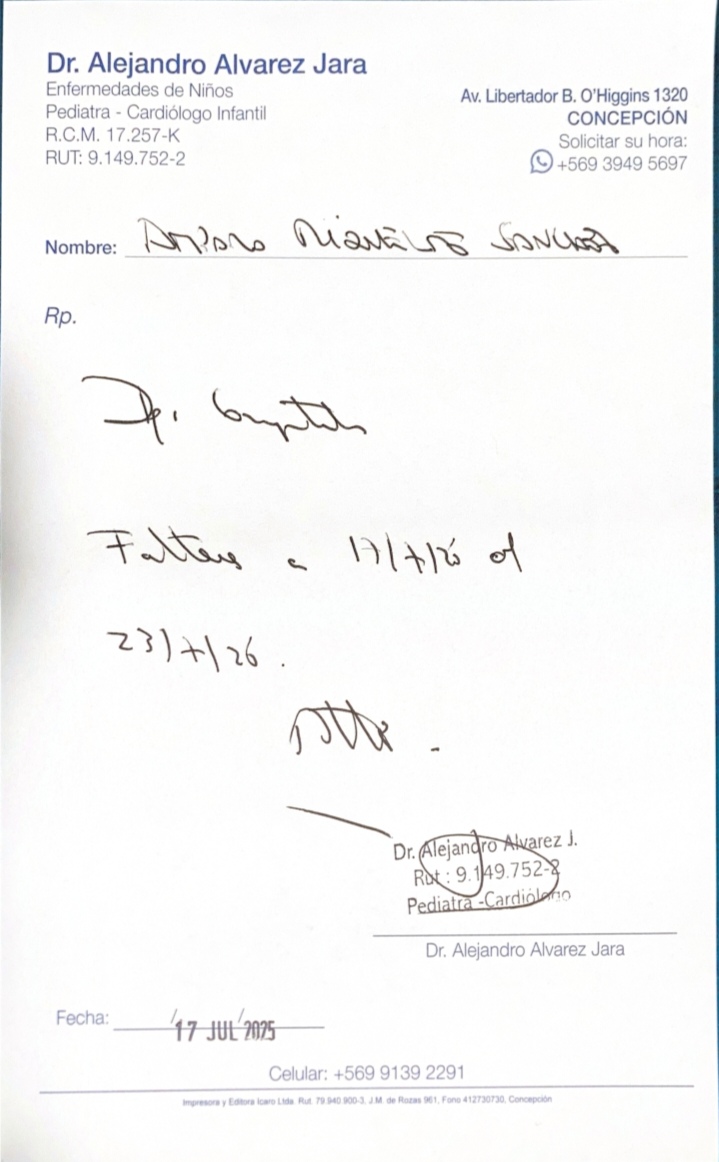 Dr. Alejandro Alvarez Jara
Enfermedades de Niños
Pediatra - Cardiólogo Infantil
R.C.M. 17.257-K
RUT: 9.149.752-2
Av. Libertador B. O'Higgins 1320
CONCEPCIÓN
Solicitar su hora:
+569 3949 5697
Nombre:
Rp.
a 17/7/26 al
23/7/26.
Dr. Alejandro Alvarez J.
Rut : 9.149.752-2
Pediatra -Cardiólogo
Dr. Alejandro Alvarez Jara
Fecha: 17 JUL 2025
Celular: +569 9139 2291
Impresora y Editora Icaro Ltda. Rut. 79.940.900-3, J.M. de Rozas 961, Fono 412730730, Concepción